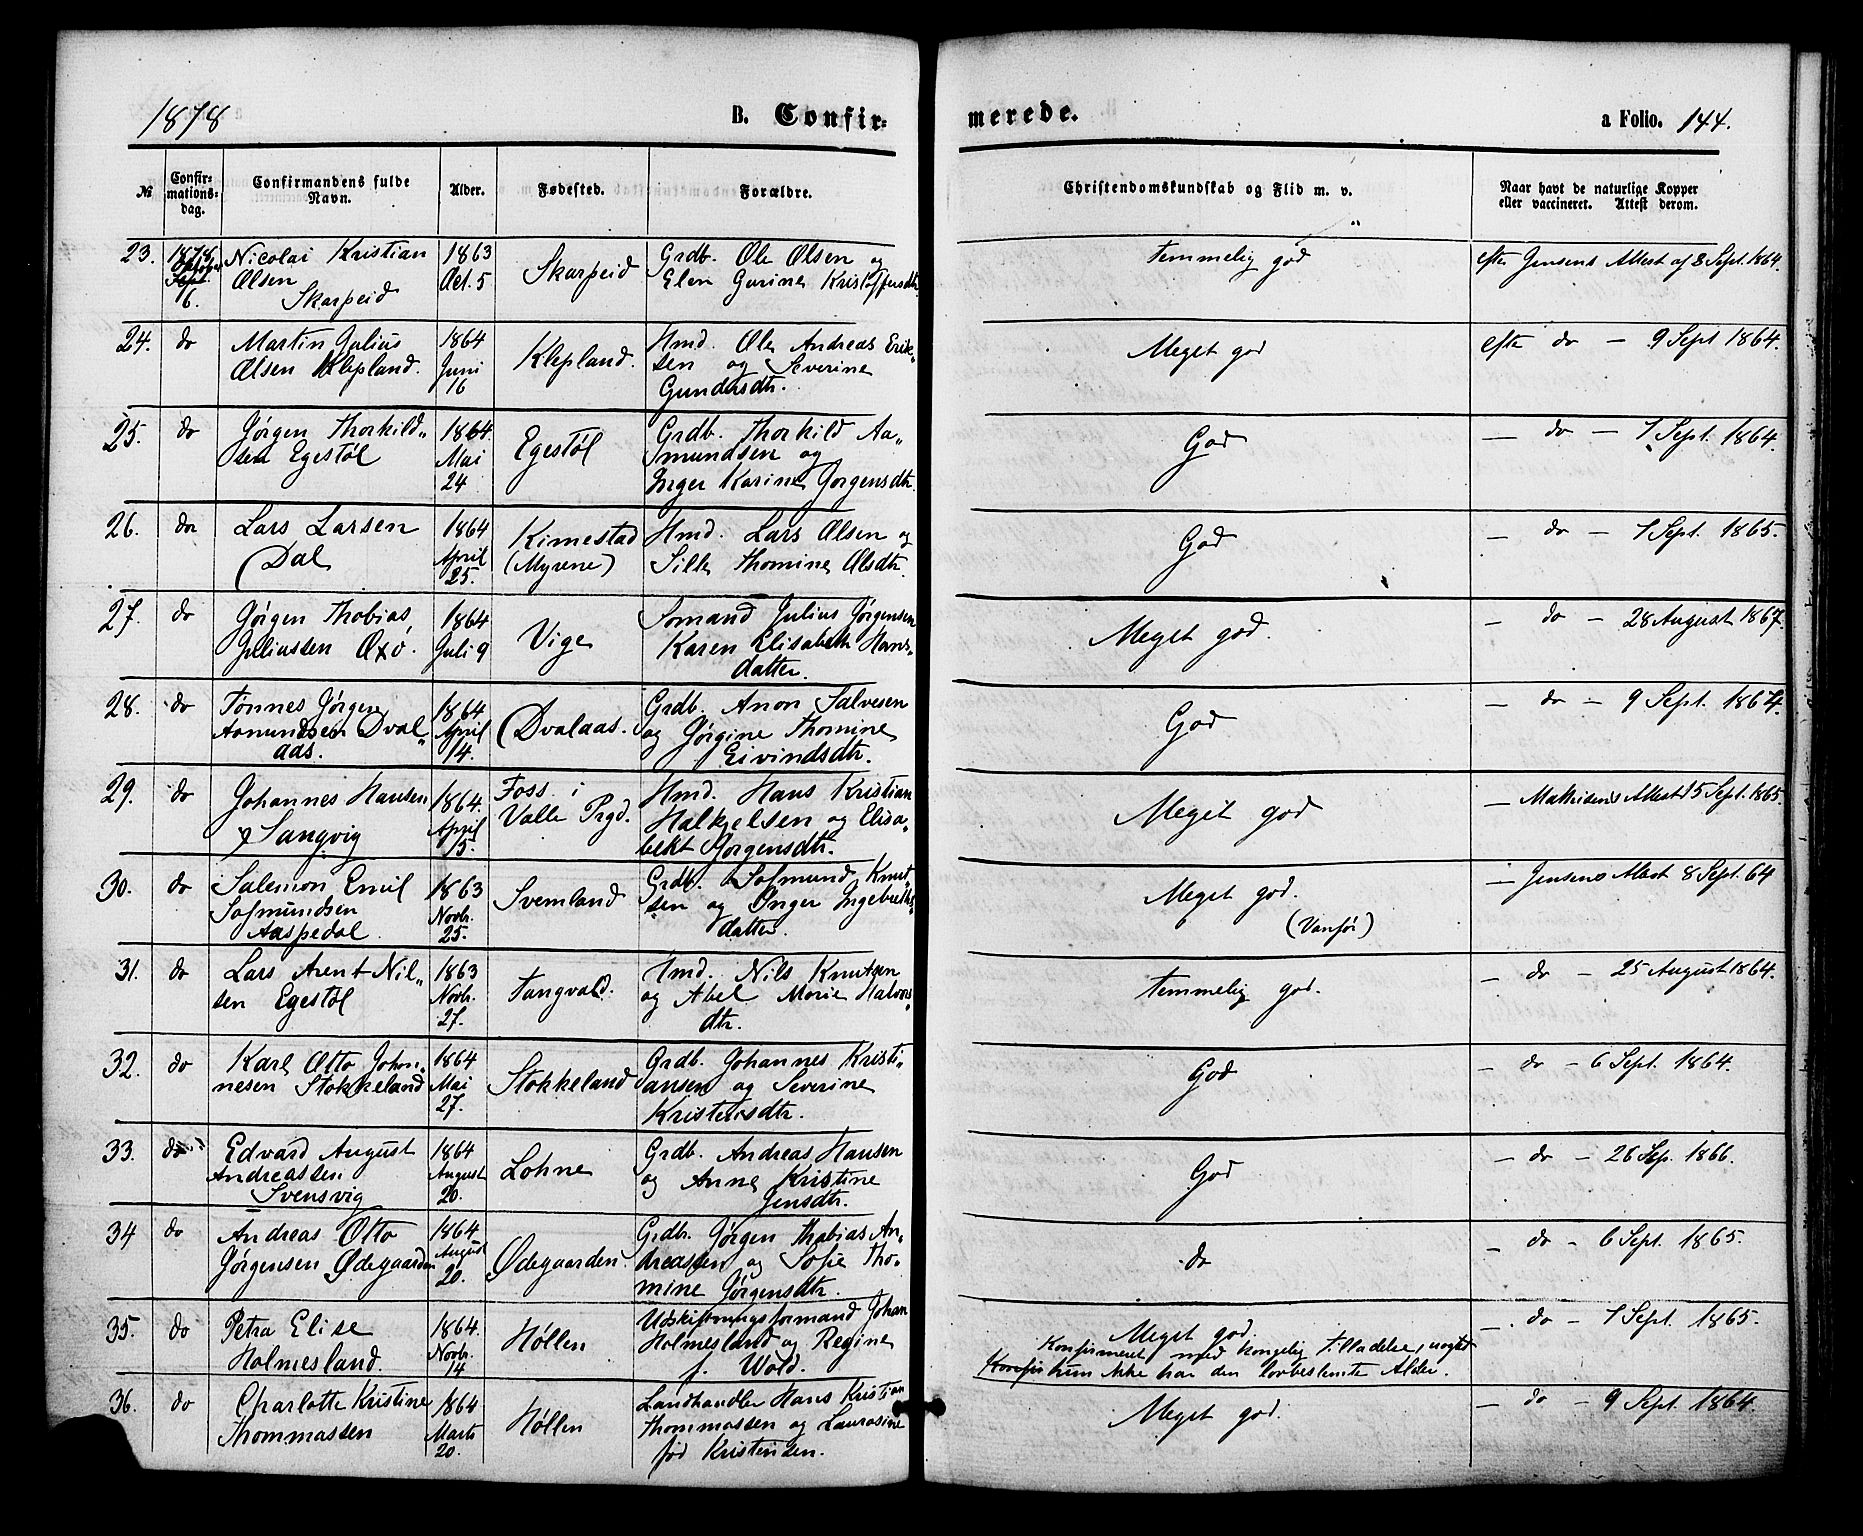 1878
B. Confir-
merede.
a Folio. 144.
№
Confir-
mations-
dag.
Confirmandens fulde
Navn.
Alder.
Fødested.
Forældre.
Christendomskundskab og Flid m. v.
Naar havt de naturlige Kopper
eller vaccineret. Attest derom.
23. 1878 Nicolai Kristian 1863 Skarpeid Grdb. Ole Olsen og Temmelig god efter Jensens Attest af 8 Sept. 1864.
October Olsen Oct. 5 Elen Gurine Kristoffersdtr.
Sept. Skarpeid
6.
24. do Martin Julius 1864 Klepland. Hmd. Ole Andreas Erik- Meget god efter do - 9 Sept 1864.
Olsen Klepland. Juni sen og Severine
16 Gundersdtr.
25. do Jørgen Thorkild- 1864. Egestøl Grdb. Thorkild Aa- God - do - 7 Sept. 1864.
sen Egestøl Mai smundsen og
24 Inger Karine Jørgensdtr.
26. do Lars Larsen 1864 Kimestad Hmd. Lars Olsen og God - do - 7 Sept. 1865.
Dal April (Myrene) Sille Thomine Olsdtr.
25.
27. do Jørgen Thobias 1864 Vige Sømand Julius Jørgensen Meget god. - do - 28 August 1867.
Juliussen Oxø. Juli 9 Karen Elisabeth Hans-
datter.
28. do Tønnes Jørgen 1864 Dvalaas. Grdb. Anon Salvesen God - do - 9 Sept. 1864.
Aanundsen Dval- April og Jørgine Thomine
aas. 14. Eivindsdtr.
29. do Johannes Hansen 1864. Foss i Hmd. Hans Kristian Meget god - Mathisens Attest 15 Sept. 1865.
Langvig April Valle Prgd. Halkjelsen og Elisa-
5. bekt Jørgensdtr.
30. do Salemon Emil 1863 Svemland Grdb. Sofmund Knut- Meget god. - Jensens Attest 8 Sept. 64
Sofmundsen Novbr. sen og Inger Ingebreths- (Vanfør)
Aaspedal. 25. datter.
31. do Lars Arent Nil- 1863 Tangvald. Hmd. Nils Knutsen Temmelig god. - do - 25 August 1864.
sen Egestøl Novbr. og Abel Marie Halvors-
27. dtr.
32. do Karl Otto Johan- 1864 Stokkeland Grdb. Johannes Kristi- God - do - 6 Sept. 1864.
nesen Stokkeland Mai ansen og Severine
27. Kristensdtr.
33. do Edvard August 1864 Lohne Grdb. Andreas Hansen God - do - 26 Sep. 1866.
Andreassen August og Anne Kristine
Svensvig 20. Jensdtr.
34 do Andreas Otto 1864 Ødegaarden. Grdbr. Jørgen Thobias An- do - do - 6 Sept. 1865.
Jørgensen Ødegaarden August dreassen og Sofie Tho-
20. mine Jørgensdtr.
35. do Petra Elise 1864. Høllen Udskiftningsformand Johan Meget god. - do - 7 Sept. 1865.
Holmesland. Novbr. Holmesland og Regine Konfirmeret med kongelig Tilladelse, uagtet
14 f. Wold. hun ikke har den lovbestemte Alder.
36. do Charlotte Kristine 1864 Høllen Landhandler Hans Kristian Meget god. - do - 9 Sept. 1864.
Thommassen Marts Thommassen og Laurasine
20. fød Kristensen.